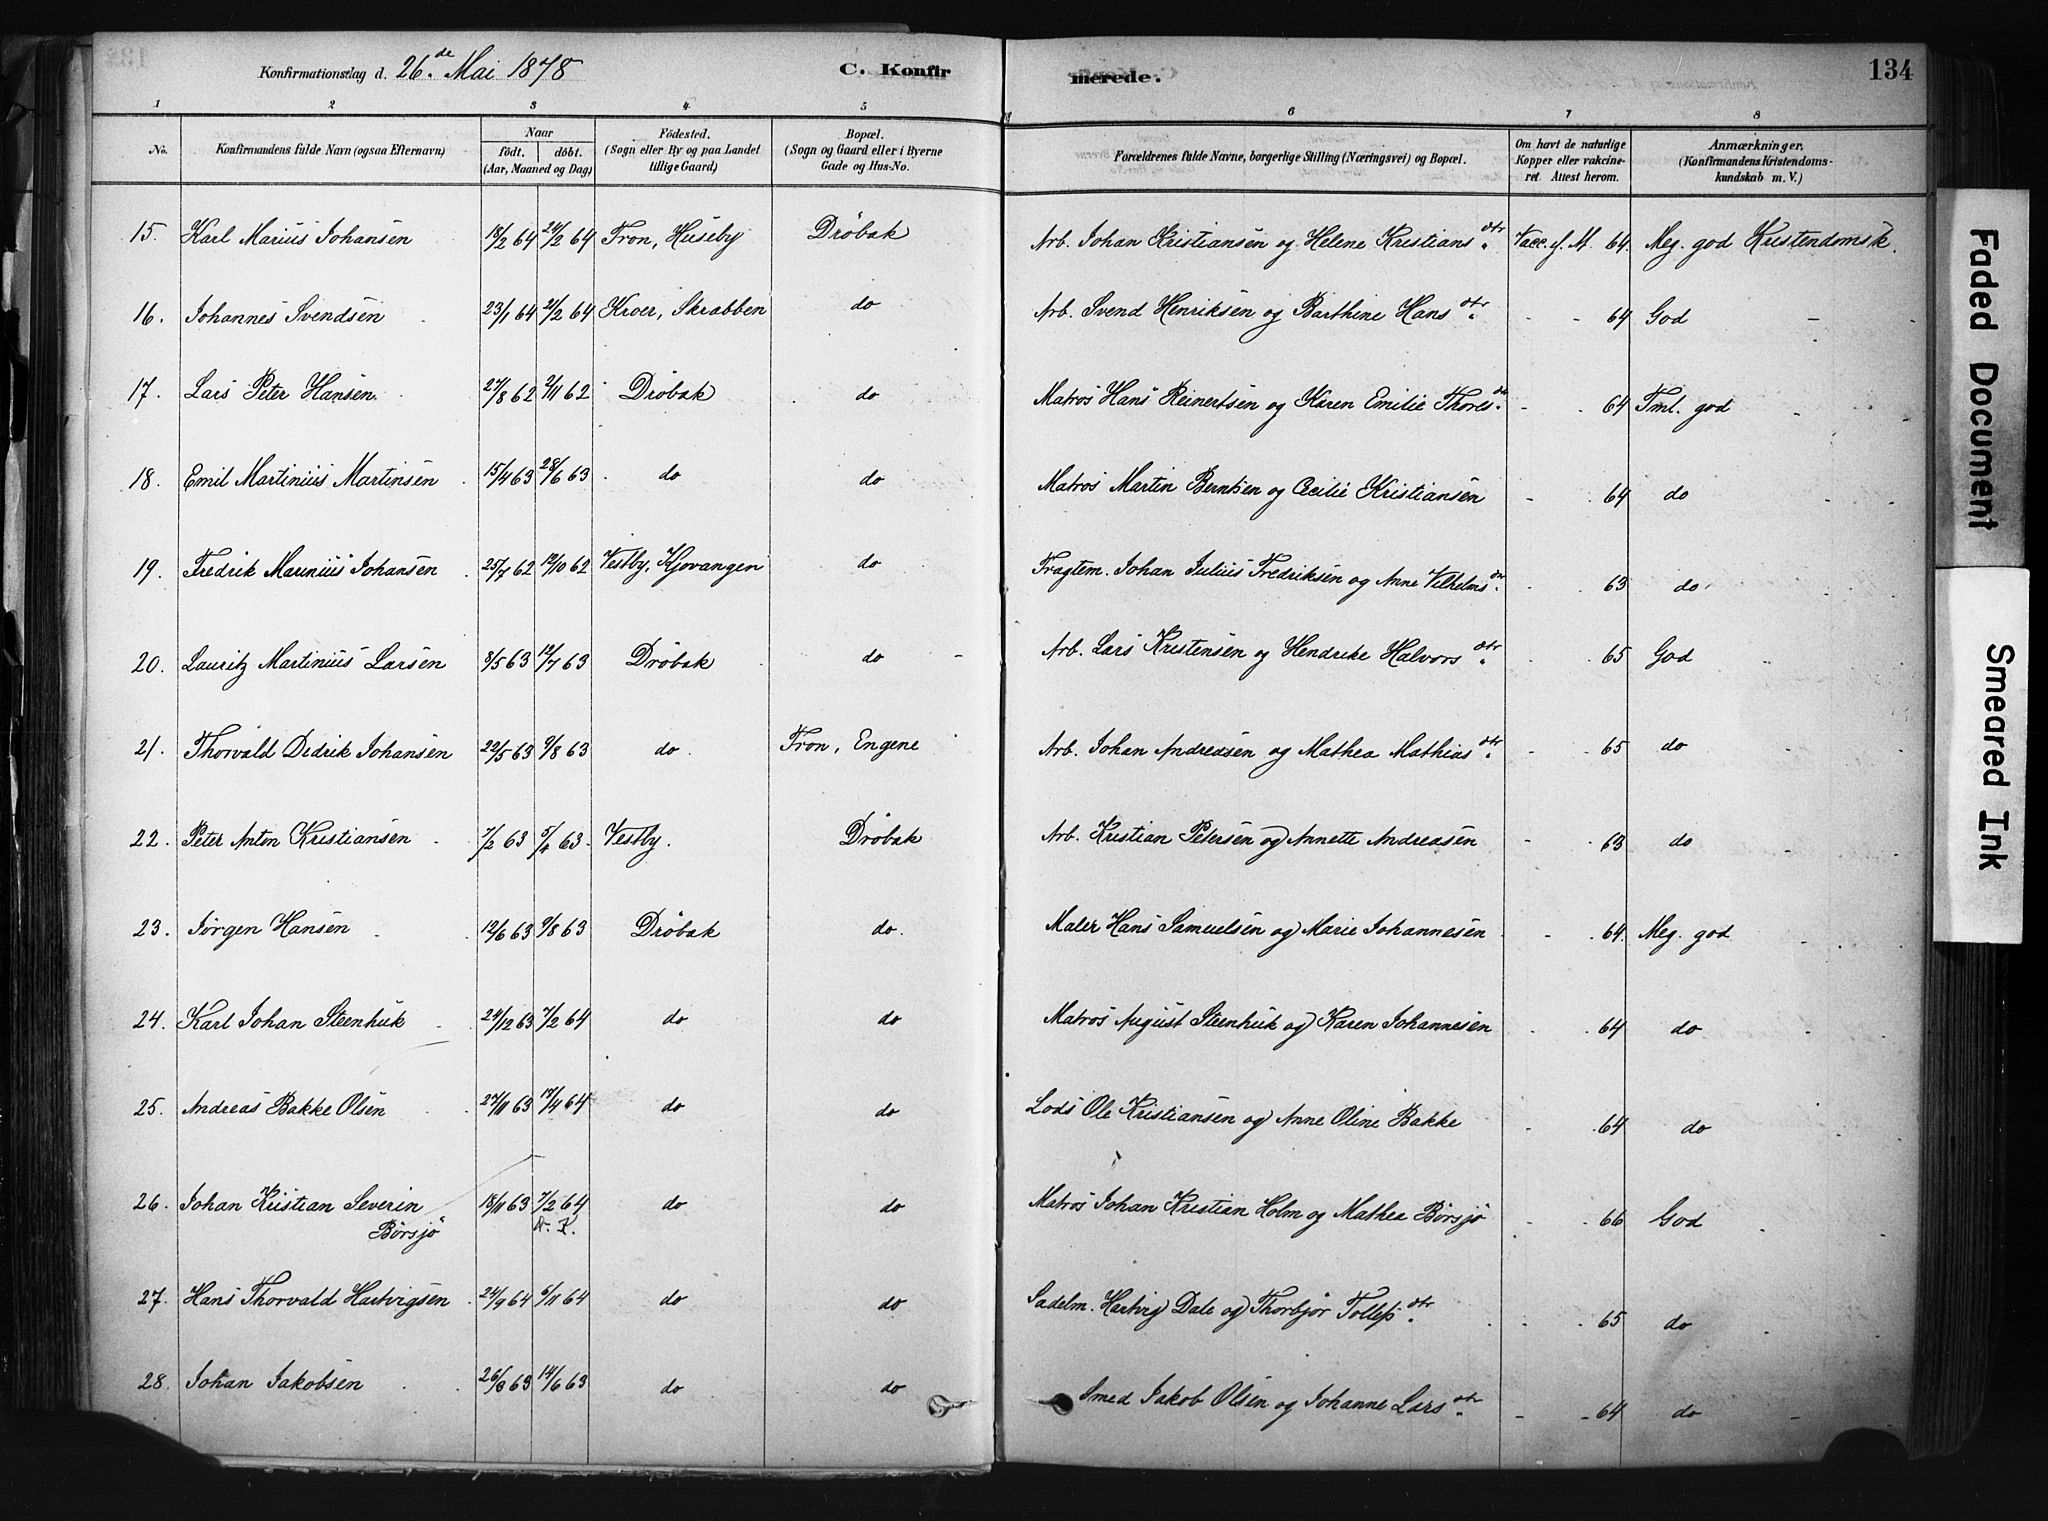 Konfirmationsdag d. 26.de Mai 1878 C. Konfirmerede. 134
1 2 3 4 5 6 7 8
No. Konfirmandens fulde Navn (ogsaa Efternavn) Naar født. døbt. (Aar, Maaned og Dag) Fødested. (Sogn eller By og paa Landet tillige Gaard) Bopæl. (Sogn og Gaard eller i Byerne Gade og Hus-No. Forældrenes fulde Navne, borgerlige Stilling (Næringsvei) og Bopæl. Om havt de naturlige Kopper eller vakcineret. Attest herom. Anmærkninger. (Konfirmandens Kristendomskundskab m. V.)
15. Karl Marius Johansen 18/2 64 21/2 64 Fron, Huseby Drøbak Arb. Johan Kristiansen og Helene Kristians dtr. Vacc. 64. Meg. god Kristendomsk.
16. Johannes Svendsen 23/1 64 21/2 64 Kroer, Skrabben do Arb. Svend Henriksen og Barthine Hans dtr. - - 64 God -
17. Lars Peter Hansen 27/8 62 2/11 62 Drøbak do Matros Hans Reinertsen og Karen Emilie Thores dtr. - - 64 Tml. god
18. Emil Martinius Martinsen 15/4 63 28/6 63 do do Matros Martin Berntsen og Cecilie Kristiansen - - 64 do
19. Fredrik Marinius Johansen 25/7 62 12/10 62 Vestby, Hjovangen do Fragtem. Johan Julius Fredriksen og Anne Vilhelms dtr. - - 63 do
20. Lauritz Martinius Larsen 8/5 63 12/7 63 Drøbak do Arb. Lars Kristensen og Hendrike Halvors dtr. - - 65 God
21. Thorvald Didrik Johansen 22/5 63 9/8 63 do Fron, Engene Arb. Johan Andreasen og Mathea Mathias dtr. - - 65 do
22. Peter Anton Kristiansen 7/2 63 5/4 63 Vestby. Drøbak Arb. Kristian Petersen og Annette Andreasen - - 63 do
23. Jørgen Hansen 12/6 63 9/8 63 Drøbak do. Maler Hans Samuelsen og Marie Johannesen - - 64. Meg. god
24. Karl Johan Steenhuk 24/12 63 7/2 64 do do Matros August Steenhuk og Karen Johannesen - - 64 do
25. Andreas Bakke Olsen 27/11 63 17/4 64 do do Lods Ole Kristiansen og Anne Oline Bakke - - 64 do
26. Johan Kristian Severin 18/11 63 7/2 64 do do Matros Johan Kristian Holm og Mathea Børsjø - - 66 God
Børsjø
27. Hans Thorvald Hartvigsen 24/9 64 6/11 64 do do Sadelm. Hartvig Dale og Thorbjør Tollefs dtr. - - 65 do
28. Johan Jakobsen 26/3 63 14/6 63 do do Smed Jakob Olsen og Johanne Lars dtr. - - 64 do -
Faded Document
Smeared Ink